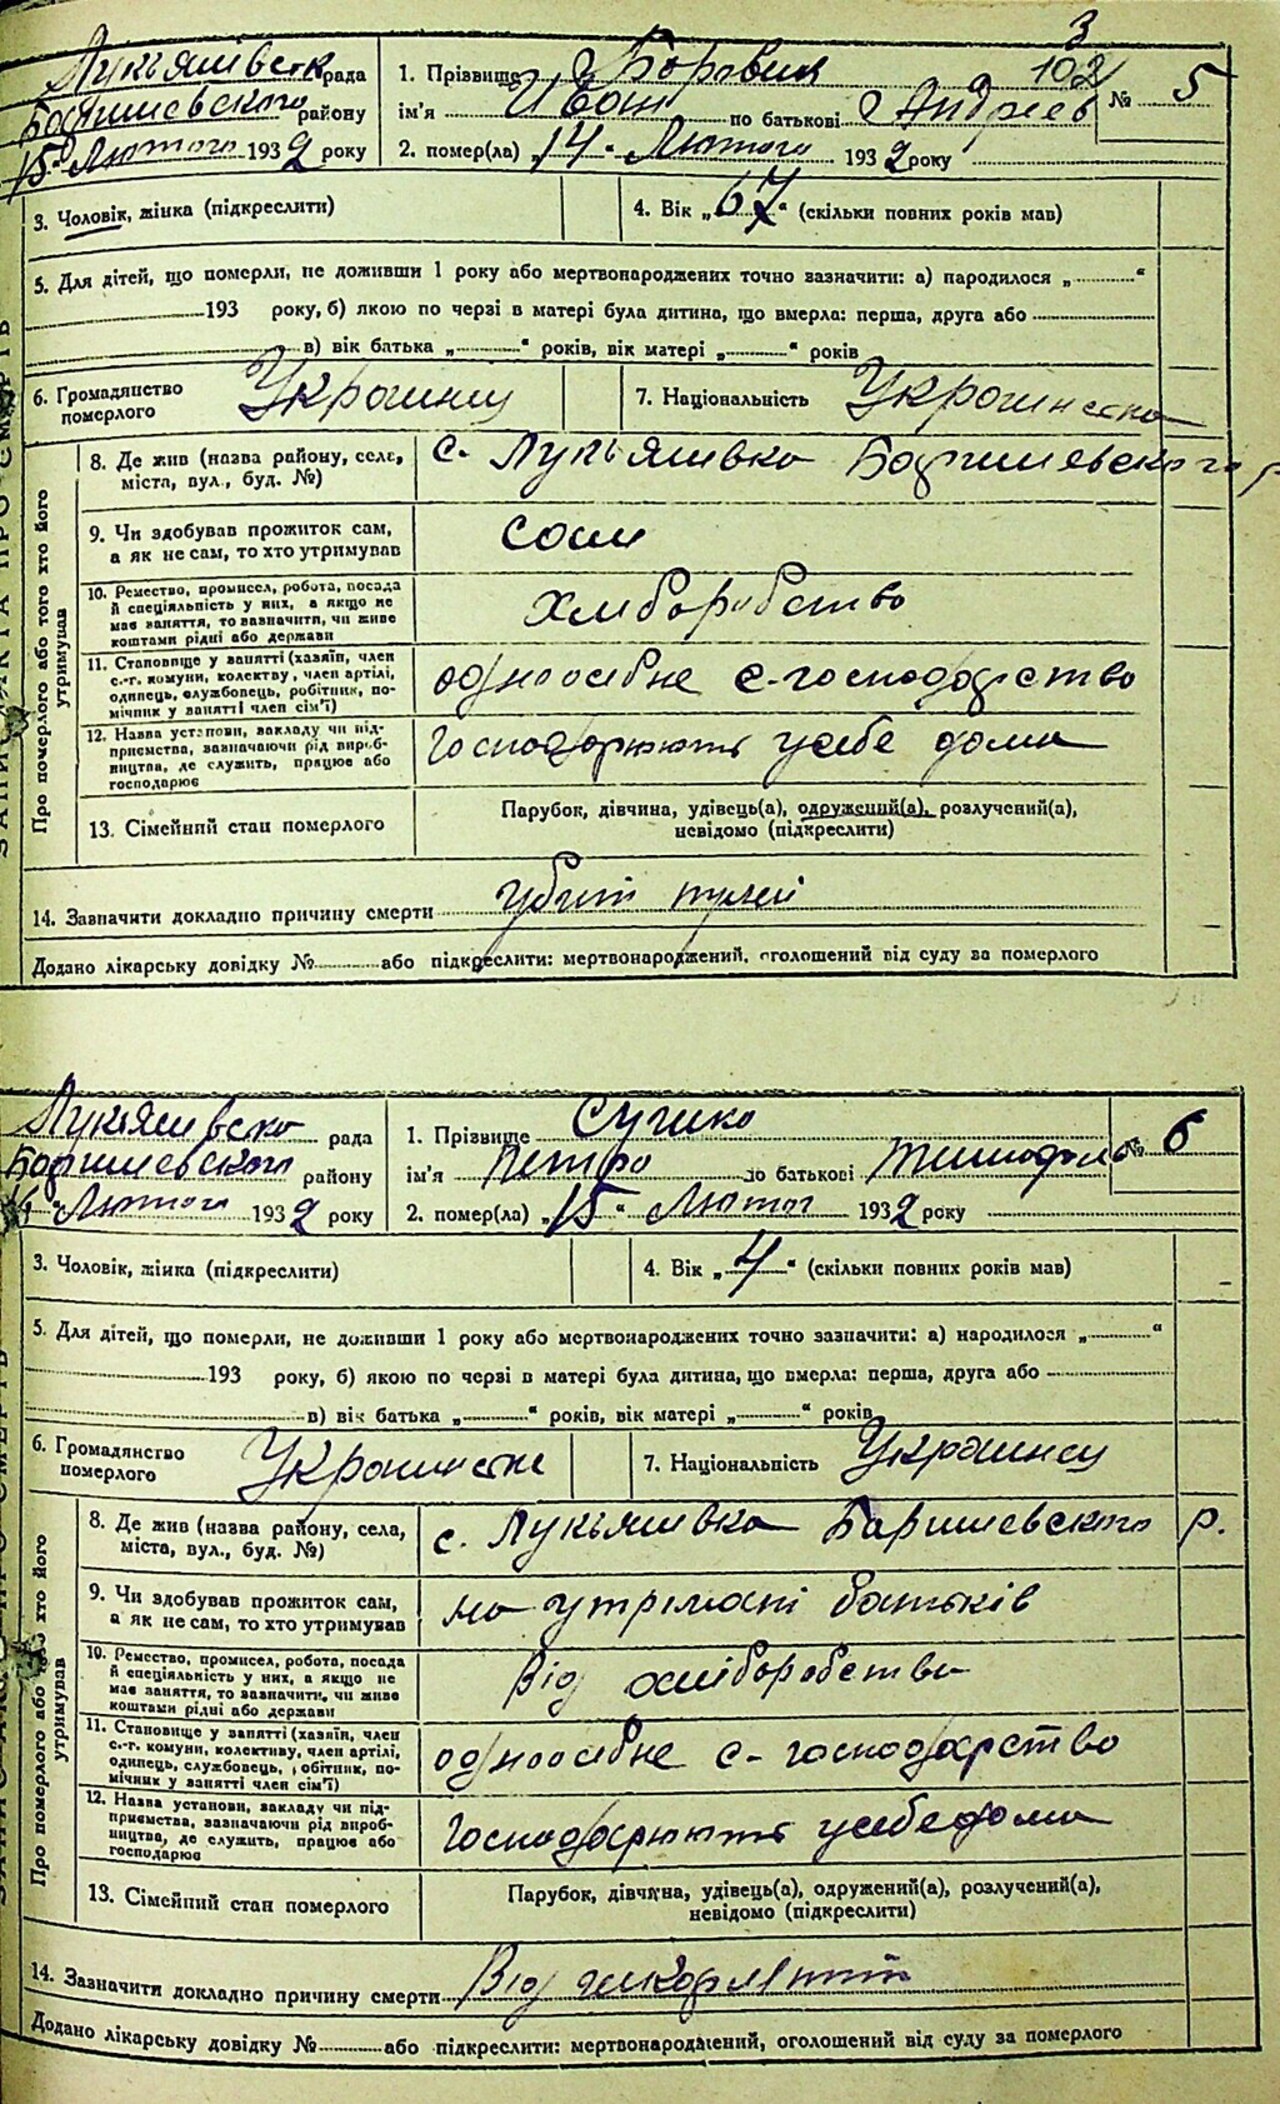 3
102
Лукьянівськ рада
Баришевського району
15 Лютого 1932 року
1. Прізвище Боровик
ім'я Иван по батькові Андреев
№ 5
2. помер(ла) „14" Лютого 1932 року
3. Чоловік, жінка (підкреслити)
4. Вік „67" (скільки повних років мав)
5. Для дітей, що померли, не доживши 1 року або мертвонароджених точно зазначити: а) народилося „ "
193 року, б) якою по черзі в матері була дитина, що вмерла: перша, друга або
в) вік батька „ " років, вік матері „ " років
6. Громадянство померлого Украинец
7. Національність
Про померлого або того хто його утримував
8. Де жив (назва району, села, міста, вул., буд. №)
с. Лукьянивка Баришевського р
9. Чи здобував прожиток сам, а як не сам, то хто утримував
сам
10. Ремество, промисел, робота, посада й спеціяльність у них, а якщо не має заняття, то зазначити, чи живе коштами рідні або держави
хлиборобство
11. Становище у занятті (хазяїн, член с.-г. комуни, колективу, член артілі, одинець, службовець, робітник, помічник у занятті член сім'ї)
одноосибне с-господарство
12. Назва установи, закладу чи підприємства, зазначаючи рід виробництва, де служить, працює або господарює
господарюють усебе дома
13. Сімейний стан померлого
Парубок, дівчина, удівець(а), одружений(а), розлучений(а),
невідомо (підкреслити)
14. Зазначити докладно причину смерти убит
Додано лікарську довідку № або підкреслити: мертвонароджений, оголошений від суду за померлого
рада
Баришевського району
Лютого 1932 року
1. Прізвище
ім'я Петро по батькові
№ 6
2. помер(ла) „15" Лютог 1932 року
3. Чоловік, жінка (підкреслити)
4. Вік „4" (скільки повних років мав)
5. Для дітей, що померли, не доживши 1 року або мертвонароджених точно зазначити: а) народилося „ "
193 року, б) якою по черзі в матері була дитина, що вмерла: перша, друга або
в) вік батька „ " років, вік матері „ " років
6. Громадянство померлого
7. Національність Украинец
Про померлого або того хто його утримував
8. Де жив (назва району, села, міста, вул., буд. №)
с. Лукьянивка Баришевского р.
9. Чи здобував прожиток сам, а як не сам, то хто утримував
на утримані батьків
10. Ремество, промисел, робота, посада й спеціяльність у них, а якщо не має заняття, то зазначити, чи живе коштами рідні або держави
Від хліборобства
11. Становище у занятті (хазяїн, член с.-г. комуни, колективу, член артілі, одинець, службовець, робітник, помічник у занятті член сім'ї)
одноосибне с-господарство
12. Назва установи, закладу чи підприємства, зазначаючи рід виробництва, де служить, працює або господарює
господарюють усебе дома
13. Сімейний стан померлого
Парубок, дівчина, удівець(а), одружений(а), розлучений(а),
невідомо (підкреслити)
14. Зазначити докладно причину смерти Від
Додано лікарську довідку № або підкреслити: мертвонароджений, оголошений від суду за померлого